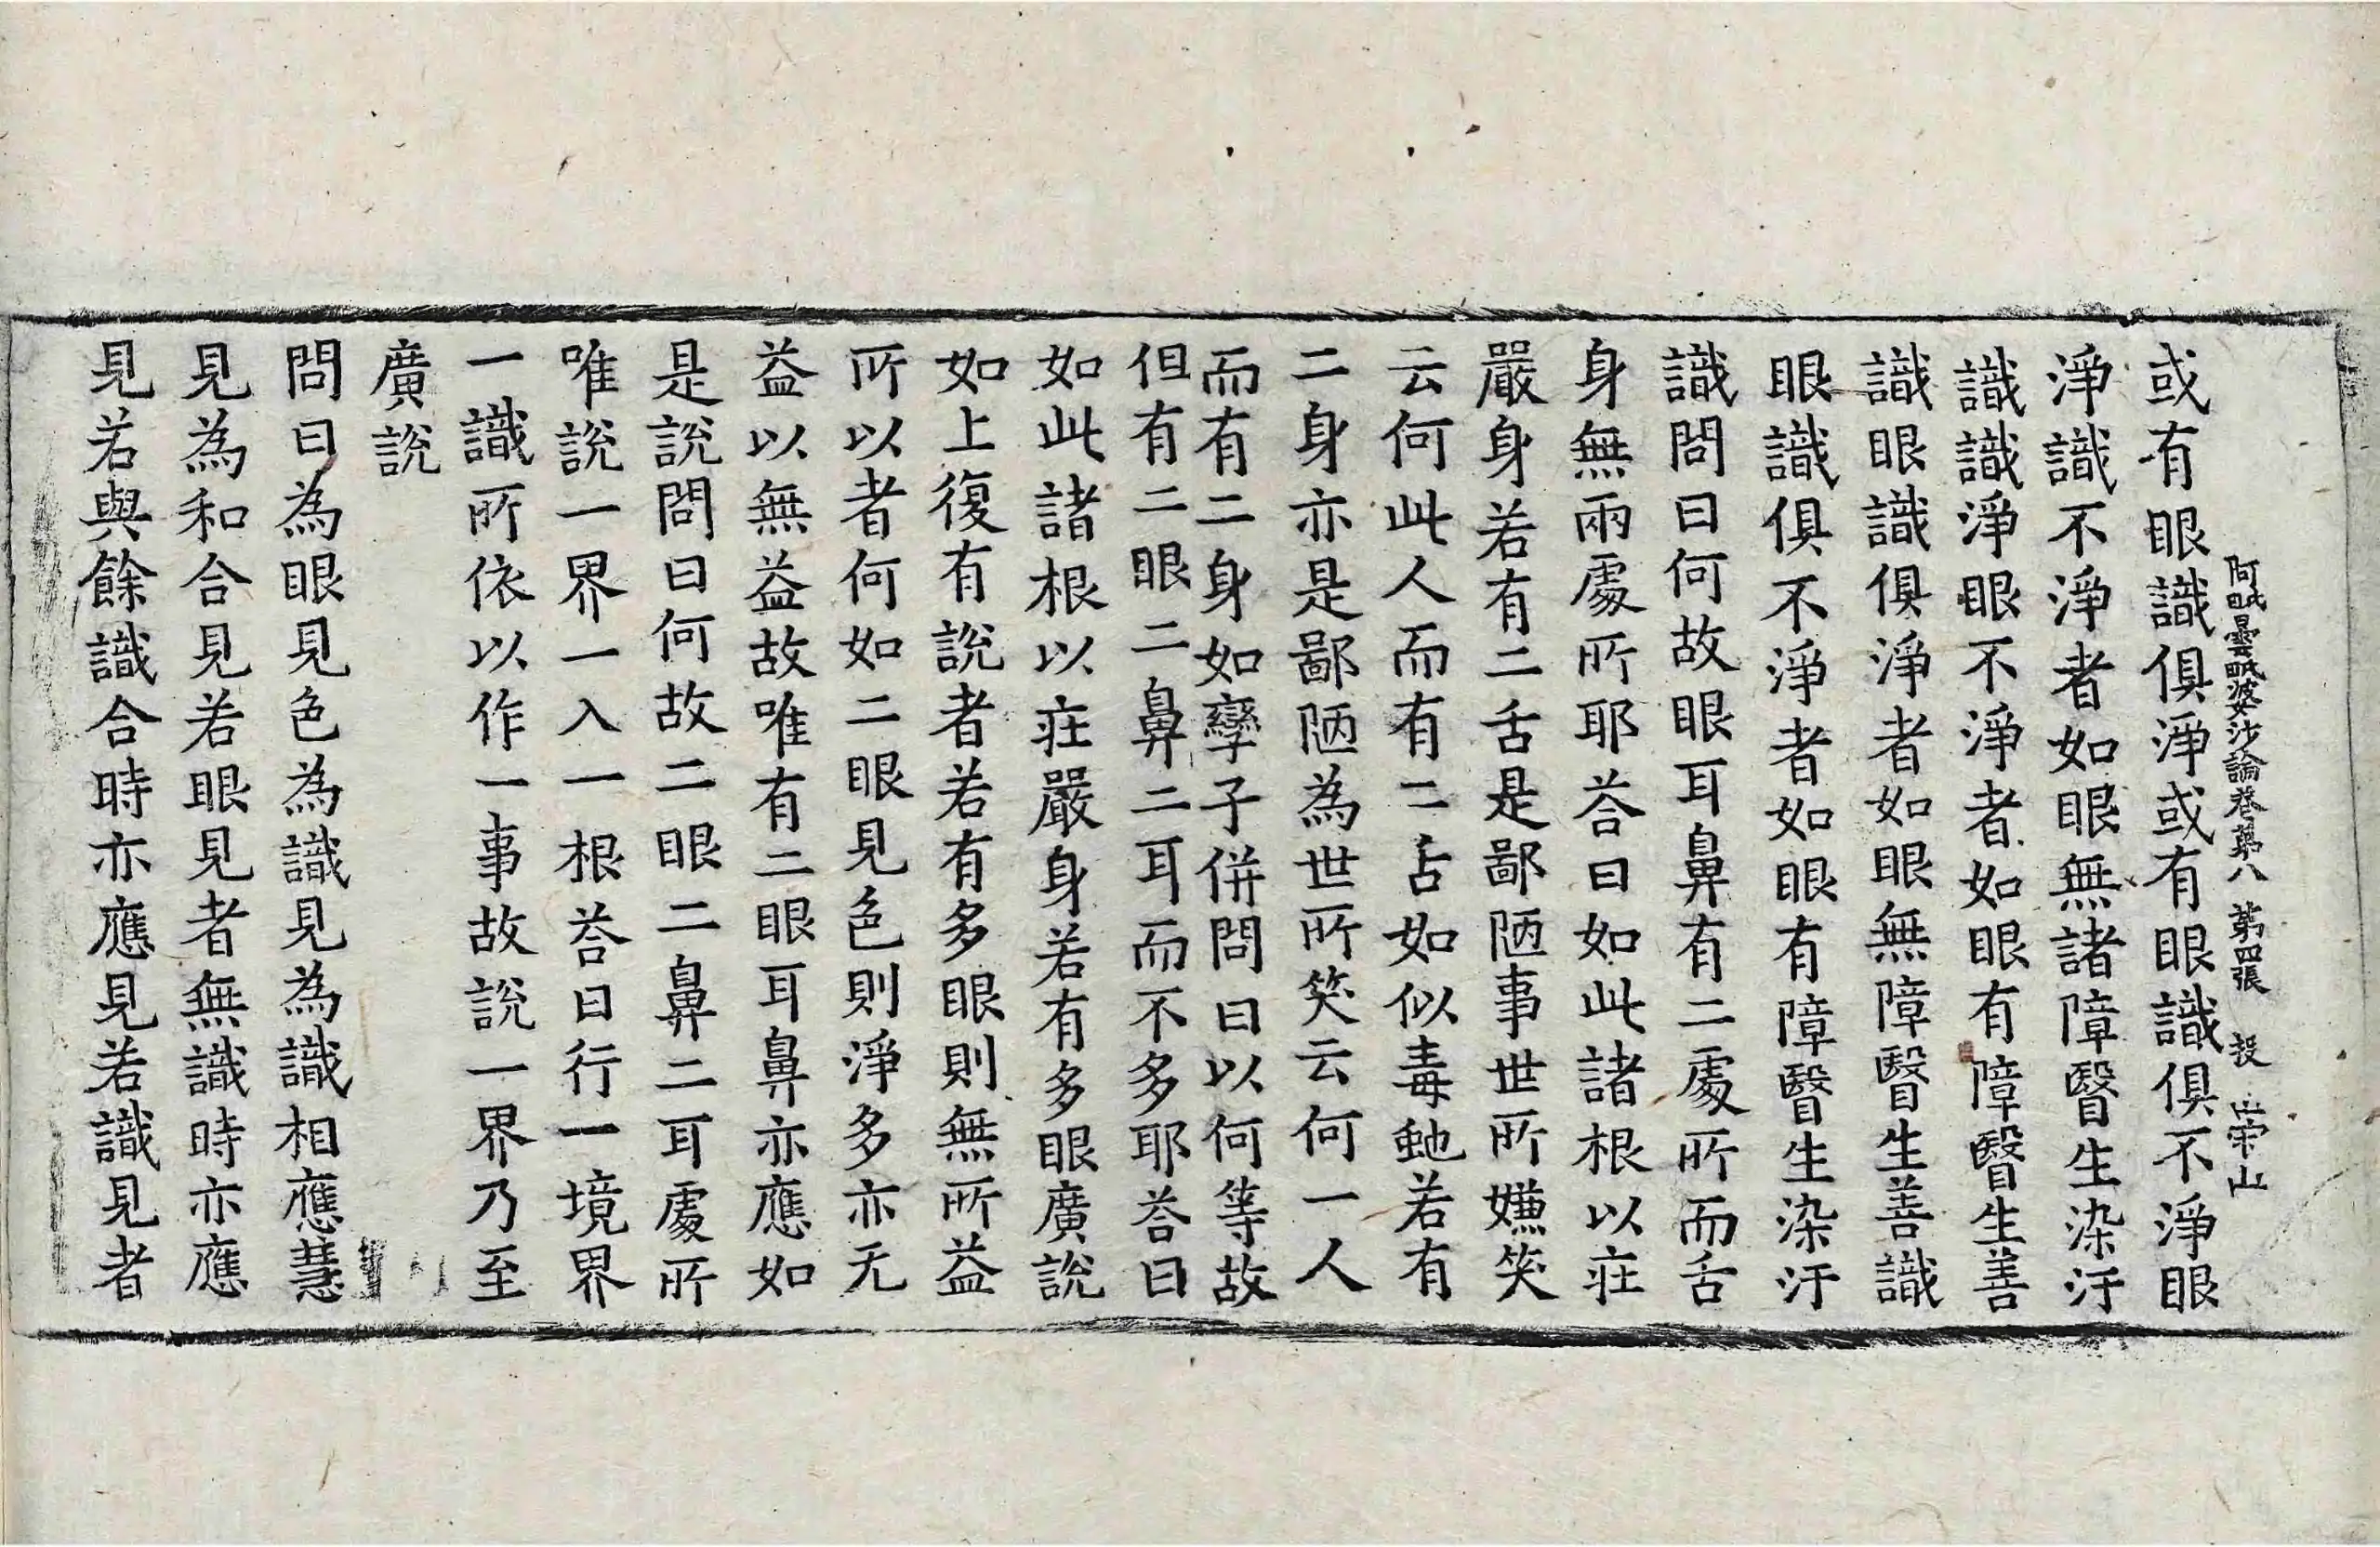 阿毗曇毗婆沙論卷第八 第四張 投
或有眼識俱淨或有眼識俱不淨眼
淨識不淨者如眼無諸障瞖生染汙
識識淨眼不淨者如眼有障瞖生善
識眼識俱淨者如眼無障瞖生善識
眼識俱不淨者如眼有障瞖生染汙
識問曰何故眼耳鼻有二處所而舌
身無兩處所耶荅曰如此諸根以莊
嚴身若有二舌是鄙陋事世所嫌笑
云何此人而有二舌如似毒虵若有
二身亦是鄙陋為世所笑云何一人
而有二身如孿子併問曰以何等故
但有二眼二鼻二耳而不多耶荅曰
如此諸根以莊嚴身若有多眼廣說
如上復有說者若有多眼則無所益
所以者何如二眼見色則淨多亦无
益以無益故唯有二眼耳鼻亦應如
是說問曰何故二眼二鼻二耳處所
唯說一界一入一根荅曰行一境界
一識所依以作一事故說一界乃至
廣說
問曰為眼見色為識見為識相應慧
見為和合見若眼見者無識時亦應
見若與餘識合時亦應見若識見者